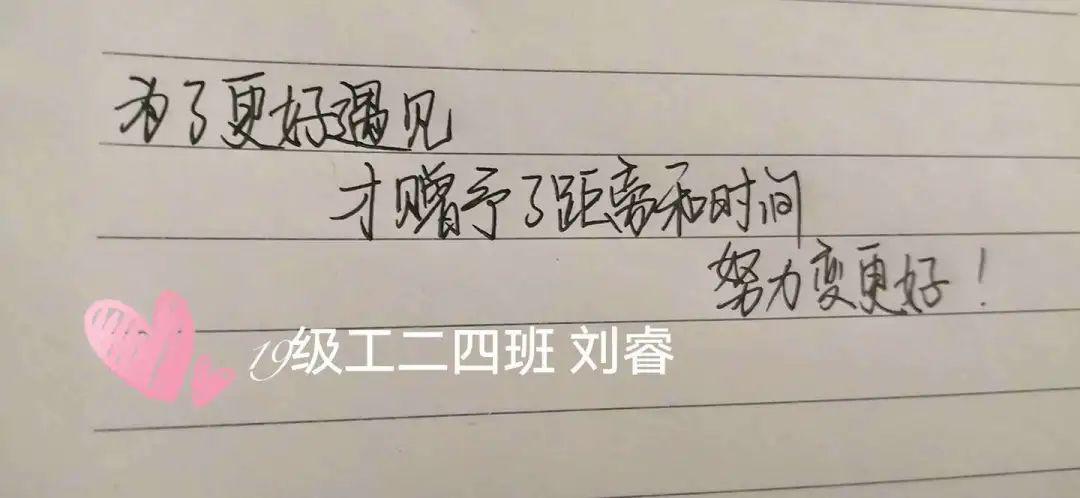 为了更好遇见
才赠予了距离和时间
努力变更好！
19级工二四班 刘睿